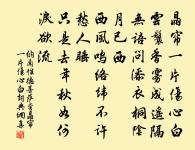 晶帘一片傷心白
雲鬟香霧成遥隔
無語問添衣桐陰
月已西
西風鳴絡緯不許
愁人睡
只是去年秋如何
淚欲流
納蘭性德菩薩蠻晶帘
一片傷心白詞典網